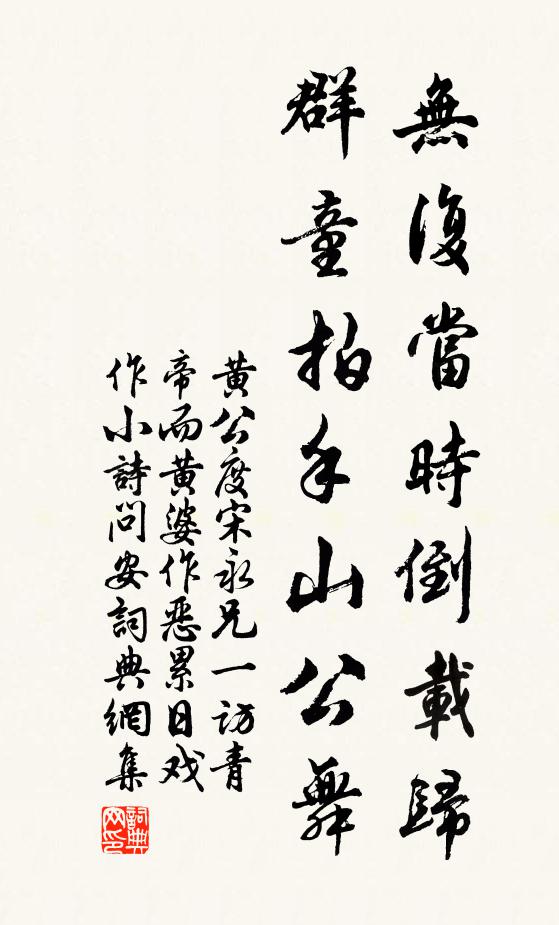 無復當時倒載歸
群童拍手山公舞
黃公度宋永兄一訪青
帝而黃婆作惡累日戏
作小詩問安詞典網集
詞典
网印